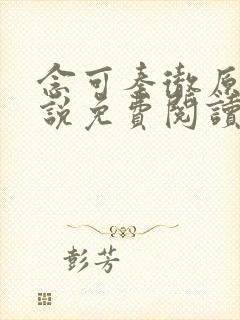 念可秦徹原
說免費閱讀
彭芳